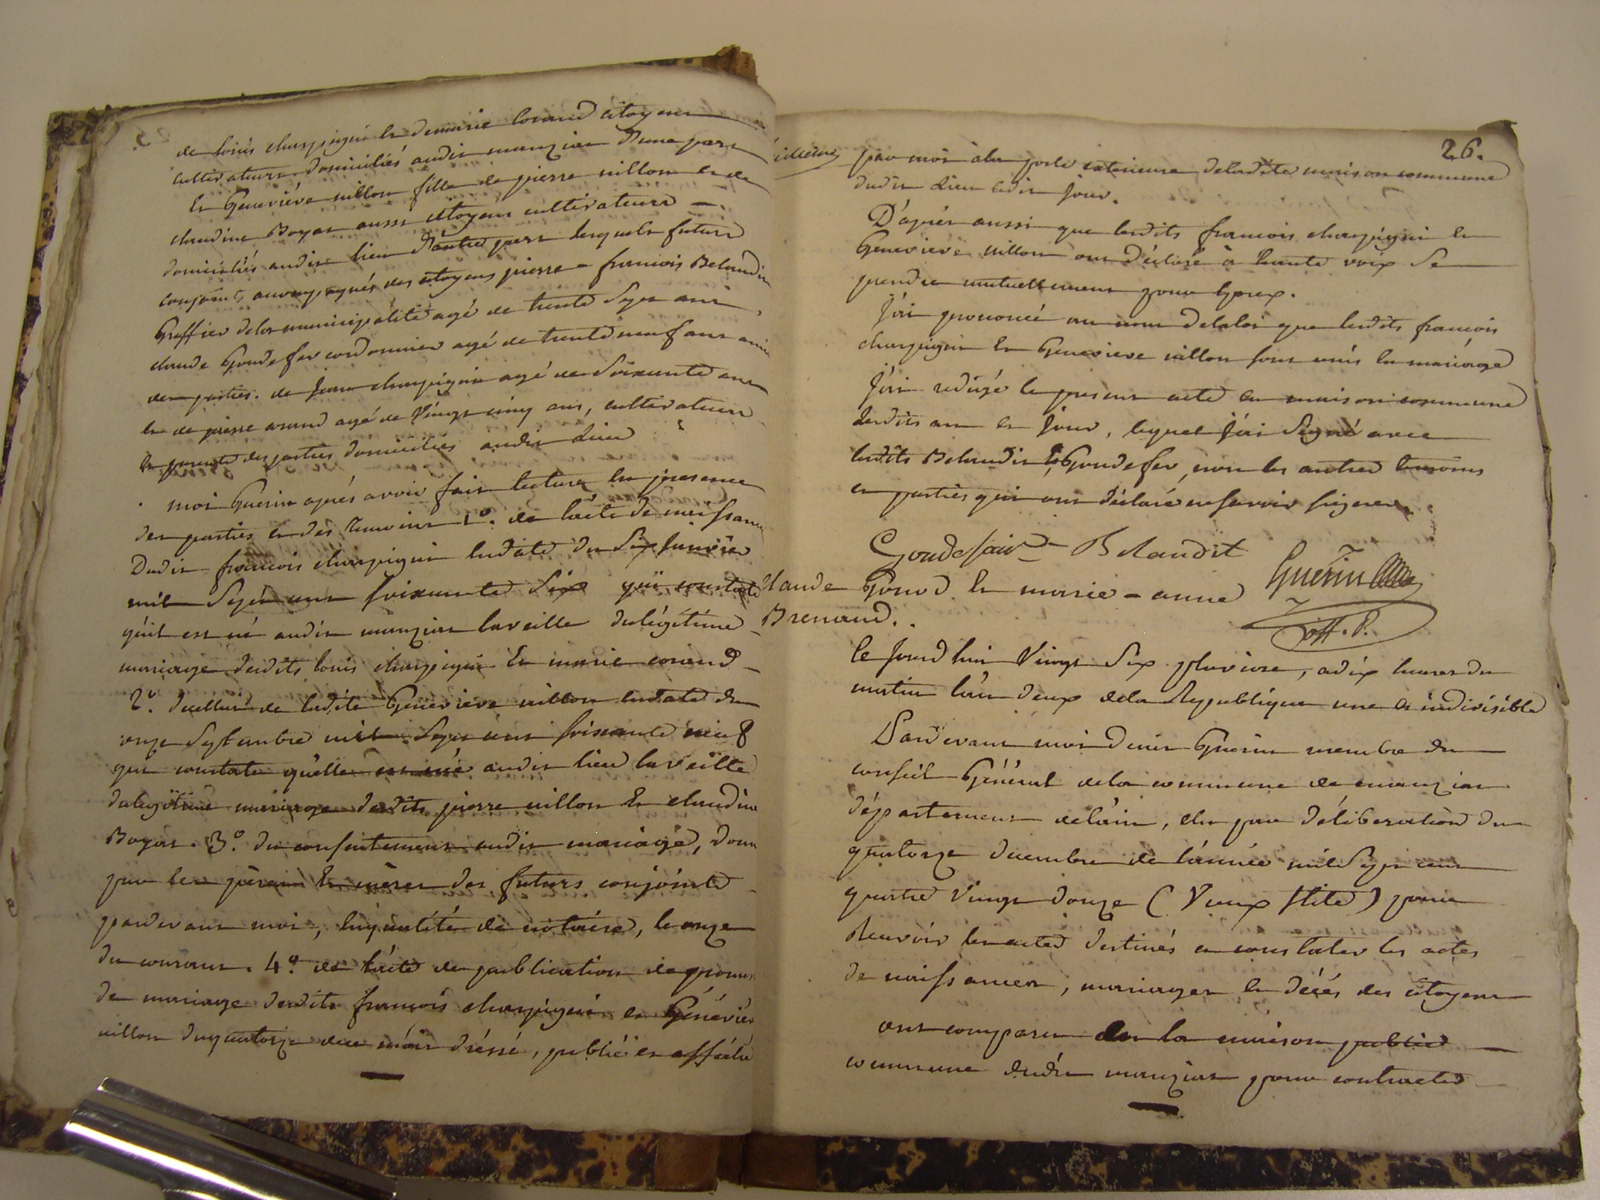 de Louis charpigni et demarie Corand Citoyens
cultivateurs domiciliés audit manziat d'une part
et Geneviéve villon fille de pierre villon et de
claudine Boyat aussi citoyens cultivateurs
domiciliés audit lieu d'autre part lesquels futurs
conjoints accompagnés des citoyens pierre-francois Belaudit
Greffier dela municipalité agé de trente sept ans,
claude Goudefer cordonnier agé de trente neuf ans amis
des parties. de jean charpigni agé de Soixante ans
et de pierre agé de Vingt cinq ans, cultivateurs
des parties domiciliés audit Lieu
moi Guerin aprés avoir fait lecture en presence
des parties et des temoins 1º. de l'acte de naissance
Dudit francois charpigni endate du Six
mil Sept cent soixante Six qui constate
qu'il est né audit manziat laveille dulégitime
mariage desdits louis charpigni Et marie corand
2º. d'celui de ladite Genevieve villon endate du
onze Septembre mil Sept cent soixante neuf
qui constate qu'elle est née audit lieu laveille
dulegitime mariage desdits pierre villon Et claudine
Boyat. 3º. du consentement audit mariage, donné
par les péres Et méres des futurs conjoints
pardevant moi, enqualité de notaire, le onze
du courant. 4º. de l'acte de publication de promesse
de mariage desdits francois charpigni et Généviéve
villon du quatorze du mois dressé, publié et affiché
26.
par moi ala porte exterieure deladite maison commune
dudit Lieu ledit Jour.
D'aprés aussi que lesdits francois charpigni et
Genevieve villon ont déclaré a haute voix Se
prendre mutuellement pour Epoux.
J'ai prononcé au nom delaloi que lesdits francois
charpigni et Genevieve villon sont unis en mariage
J'ai redigé le present acte en maison commune
lesdits an et Jour, lequel j'ai Signé avec
lesdits Belaudit et Goudefer, non les autres temoins
et parties qui ont déclaré ne savoir signer
Goudefair Belaudit Guérin
off. P.
Claude Gonod et marie-anne
Brenaud.
Ce Jourd'hui Vingt Six pluviose, adix heures du
matin l'an deux dela Republique une et indivisible
Pardevant moi Denis Guerin membre du
conseil Général dela commune de manziat
département delain, elu par déliberation du
quatorze decembre de l'année mil Sept cent
quatre Vingt douze (Vieux Stile) pour
Recevoir les actes destinés a constater les actes
de naissances, mariages et décés des citoyens
ont comparu en la maison public
commune dudit manziat pour contracter